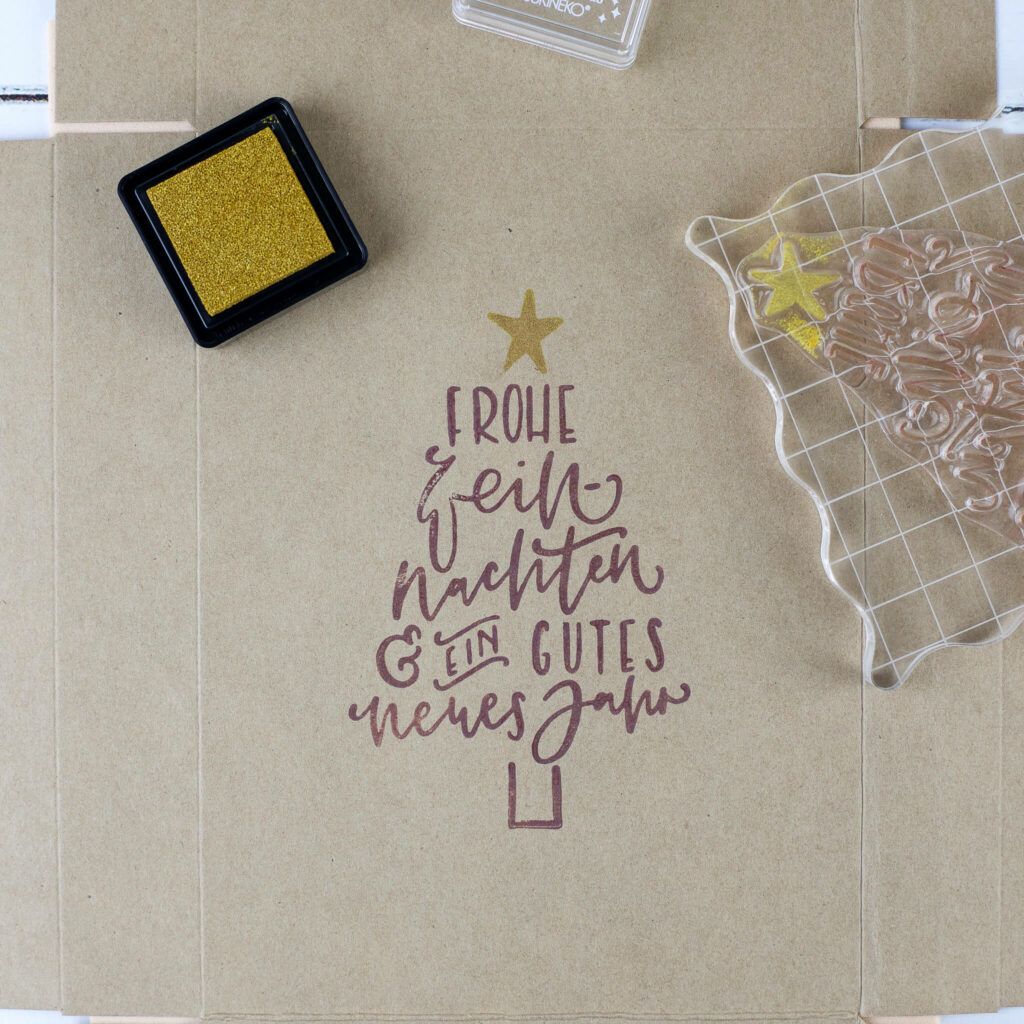 FROHE
Weih-
nachten
& EIN GUTES
neues Jahr